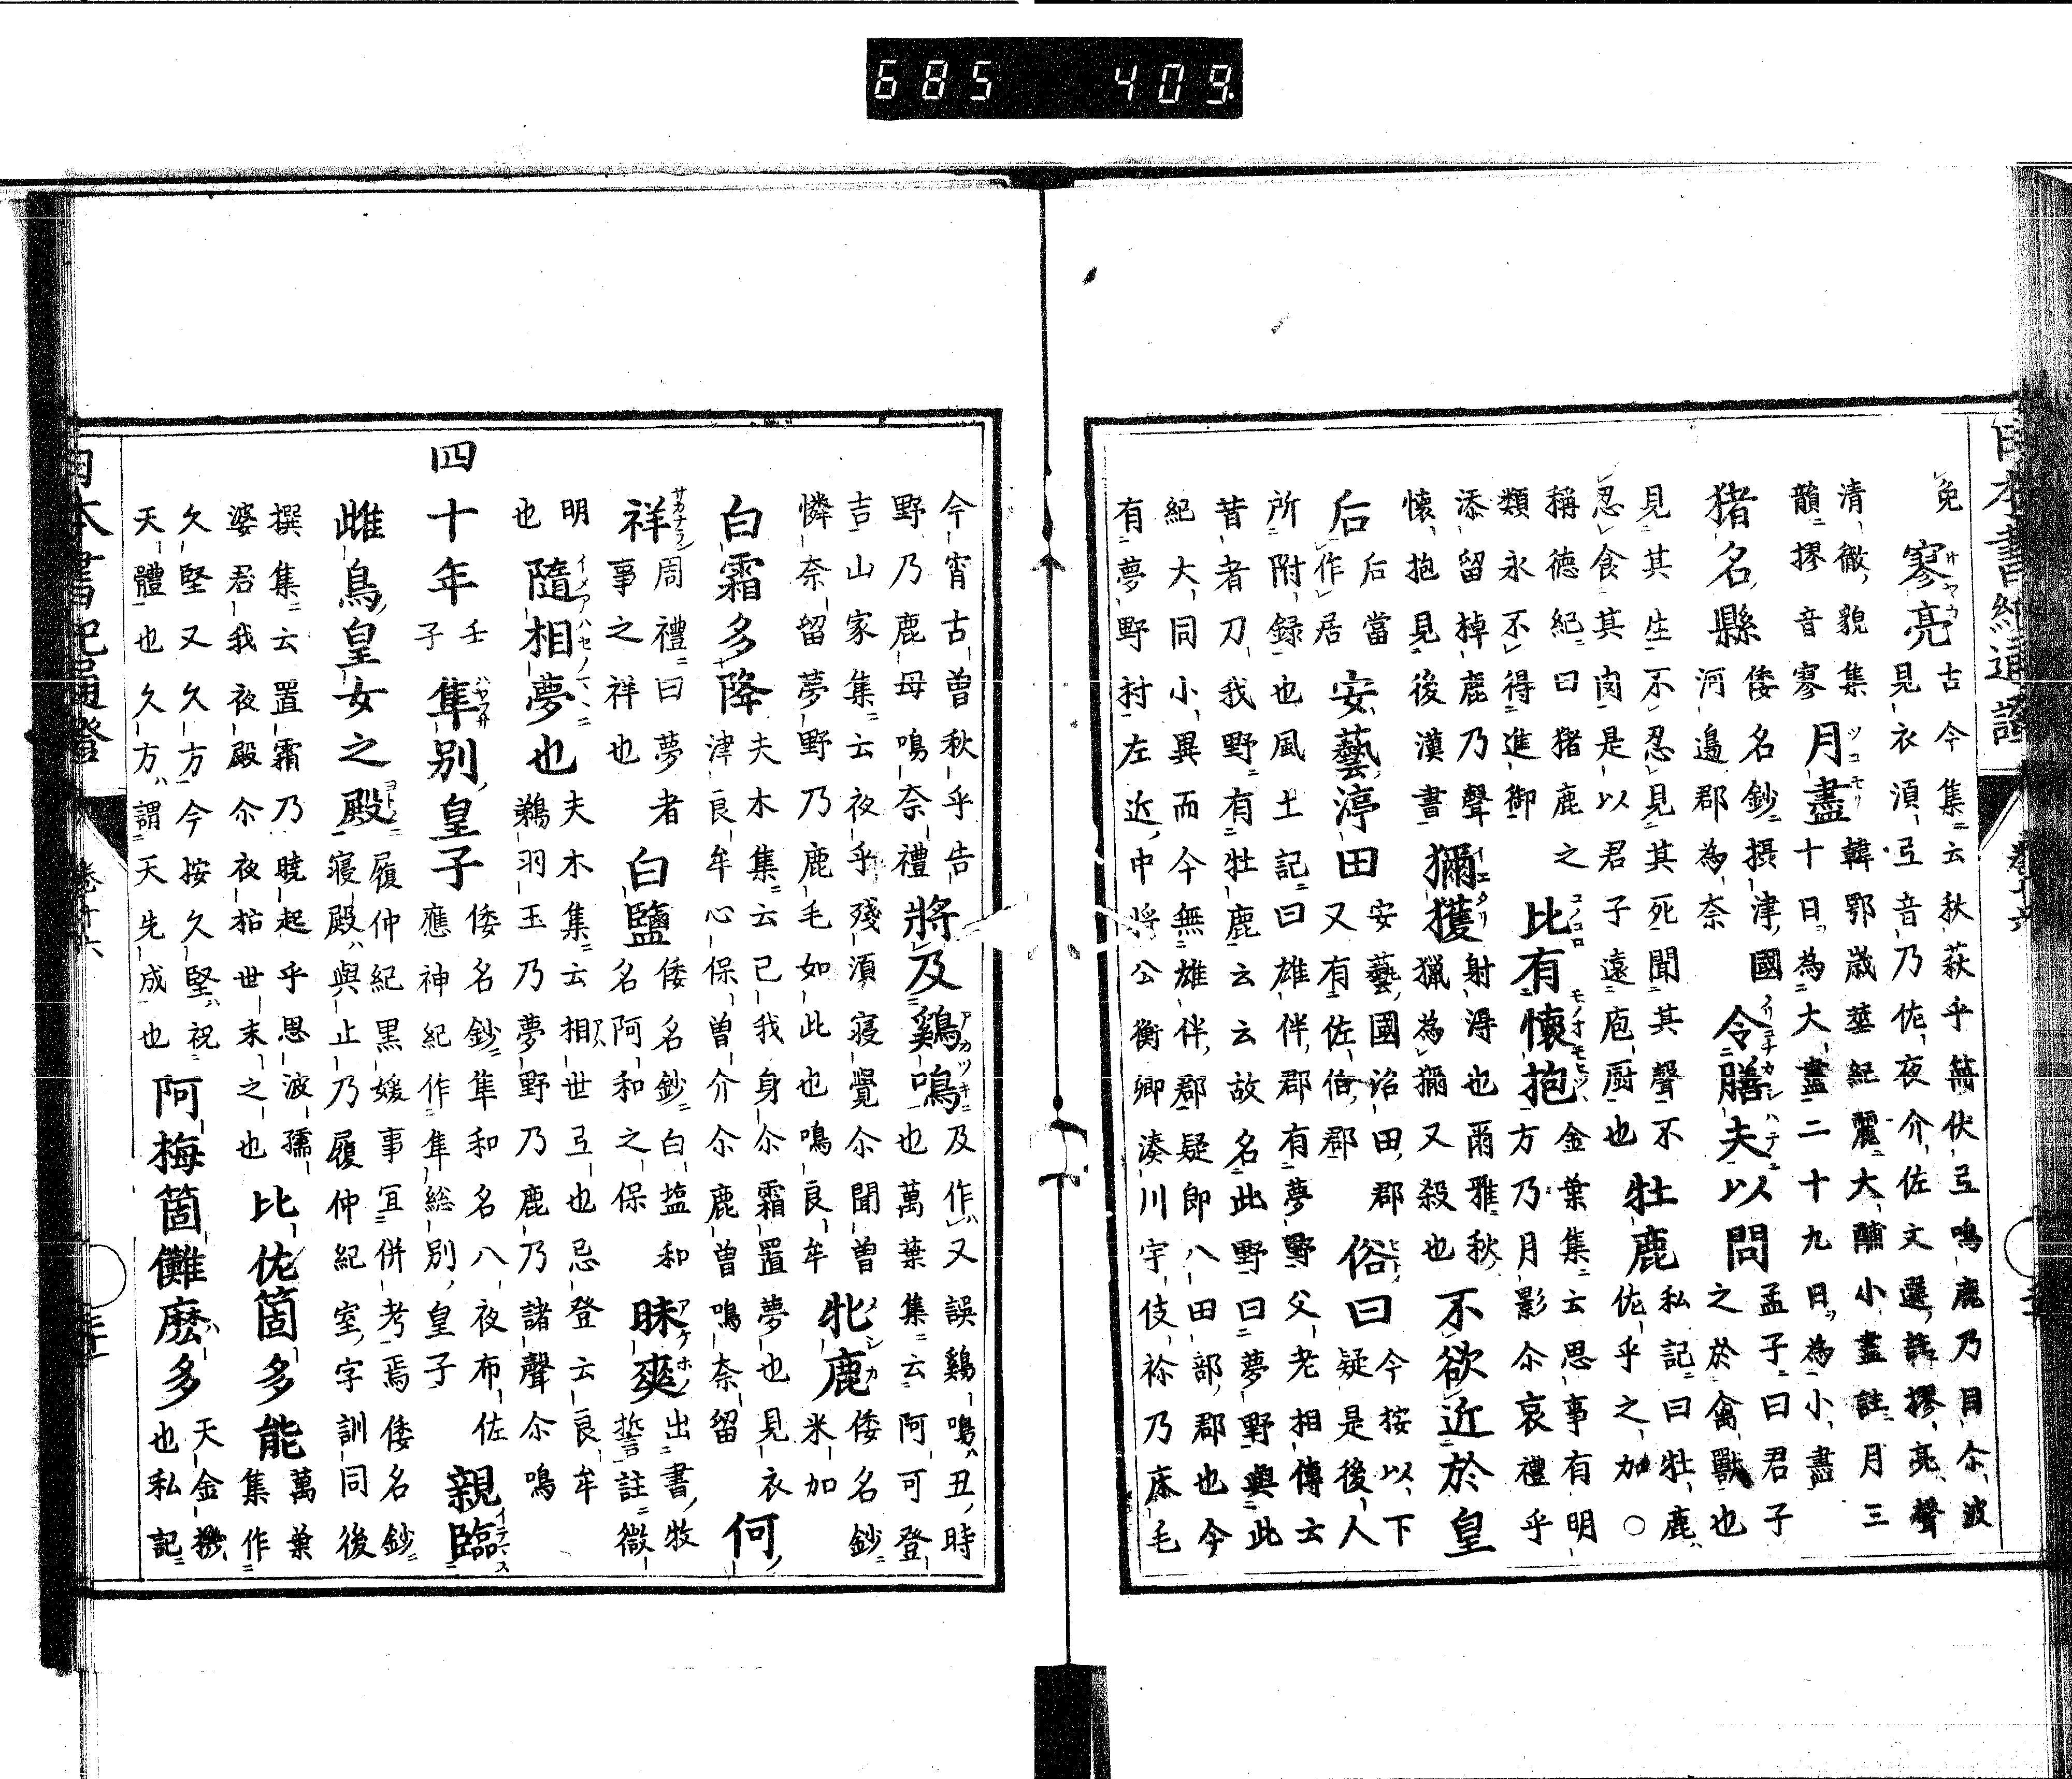 685 409
日本書紀通證
卷十六
免
寥亮 古今集云秋萩乎無伏弖鳴鹿乃目尒波
見衣湏弖音乃佐夜介佐文選註摎亮聲
清徹貌集
韻摎音寥
月盡 韓鄂歳華紀麗大酺小盡註月三
十日為大盡二十九日為小盡
猪名縣 倭名鈔攝津國
河邉郡為奈
令膳夫以問 孟子曰君子
之於禽獸也
見其生不忍見其死聞其聲不
忍食其肉是以君子遠庖厨也
牡鹿 私記曰牡鹿
佐乎之加○
稱徳紀曰猪鹿之
類永不得進御
比有懐抱 金葉集云思事有明
方乃月影尒哀禮乎
添留掉鹿乃聲
懐抱見後漢書
獮獲 射淂也爾雅秋
獵為獮又殺也
不欲近於皇
后 后當
作居
安藝渟田 安藝國沼田郡
又有佐伯郡
俗曰 今按以下
疑是後人
所附録也風土記曰雄伴郡有夢野父老相傳云
昔者刀我野有牡鹿云云故名此野曰夢野與此
紀大同小異而今無雄伴郡疑即八田部郡也今
有夢野村左近中將公衡卿湊川宇伎祢乃床毛
今宵古曽秋乎告
野乃鹿母鳴奈禮
將及鷄鳴 及作又誤鷄鳴丑時
也萬葉集云阿可登
吉山家集云夜乎殘湏寝覺尒聞曽
憐奈留夢野乃鹿毛如此也鳴良牟
牝鹿 倭名鈔
米加
白霜多降 夫木集云己我身尒霜置夢也見衣
津良牟心保曽介尒鹿曽鳴奈留
何
祥 周禮曰夢者
事之祥也
白鹽 倭名鈔白塩和
名阿和之保
昧爽 出書牧
誓註微
明
也
隨相夢也 夫木集云相世弖也忌登云良牟
鵜羽玉乃夢野乃鹿乃諸聲尒鳴
四十年 壬
子
隼別皇子 倭名鈔隼和名八夜布佐
應神紀作隼総別皇子
親臨
雌鳥皇女之殿 履仲紀黒媛事宜併考焉倭名鈔
寝殿與止乃履仲紀室字訓同後
撰集云置霜乃暁起乎思波孺
婆君我夜殿尒夜枯世末之也
比佐箇多能 萬葉
集作
久堅又久方今按久堅祝
天體也久方謂天先成也
阿梅箇儺麼多 天金機
也私記